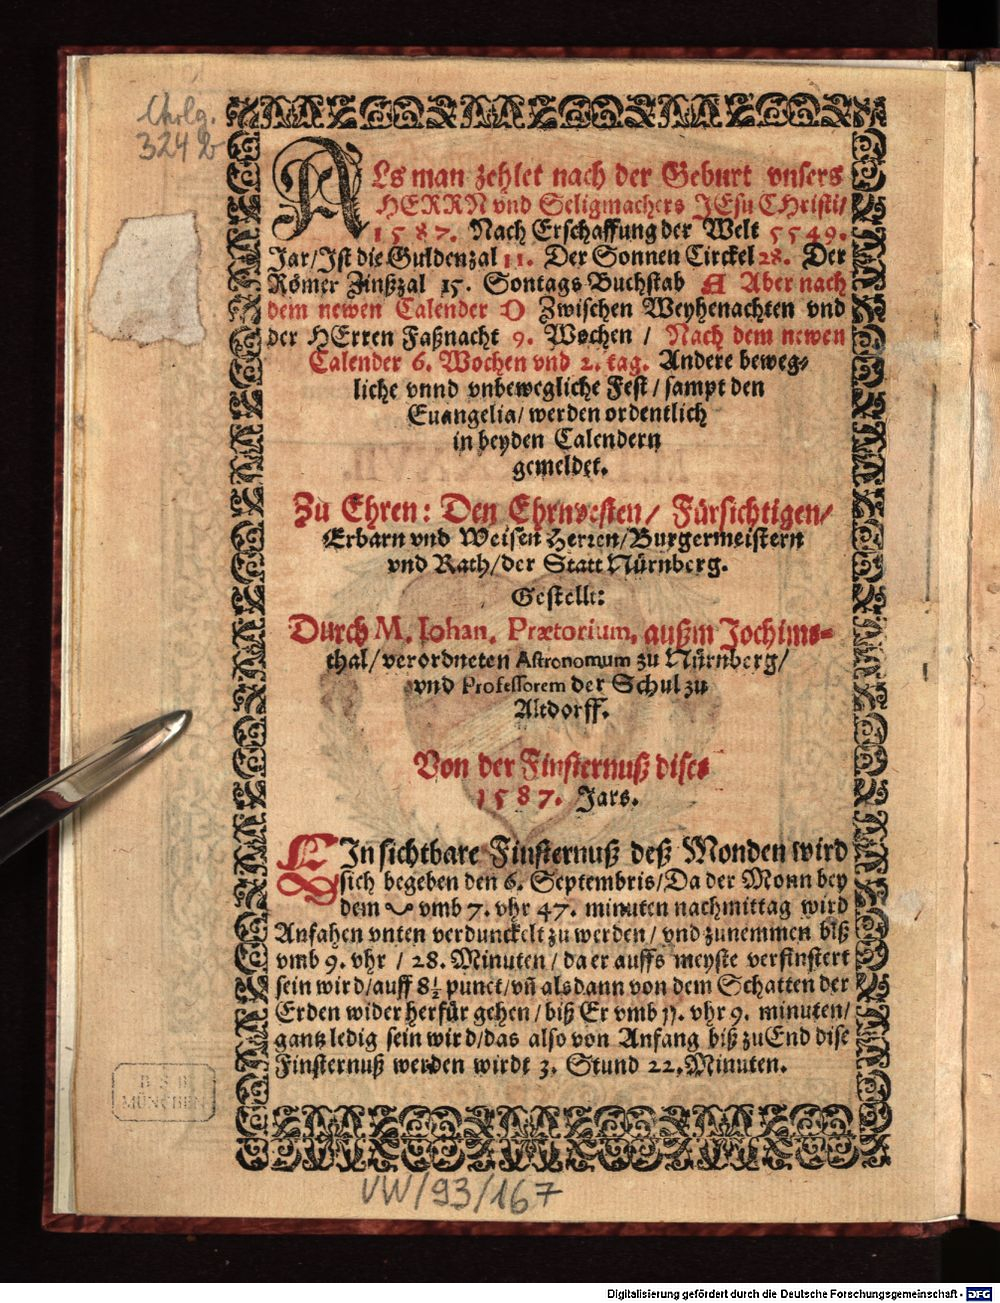 Chrlg.
324 b
ALs man zehlet nach der Geburt vnsers
HERRN vnd Seligmachers JEsu CHristi/
1587. Nach Erschaffung der Welt 5549.
Jar/Jst die Guldenzal 11. Der Sonnen Circkel 28. Der
Römer Zinßzal 15. Sontags Buchstab A Aber nach
dem newen Calender D Zwischen Weyhenachten vnd
der HErren Faßnacht 9. Wochen / Nach dem newen
Calender 6. Wochen vnd 2. tag. Andere beweg-
liche vnnd vnbewegliche Fest/ sampt den
Euangelia/ werden ordentlich
in beyden Calendern
gemeldet.
Zu Ehren: Den Ehrnvesten/ Fürsichtigen/
Erbarn vnd Weisen Herren/Burgermeistern
vnd Rath/der Statt Nürnberg.
Gestellt:
Durch M. Iohan. Prætorium, außm Jochims-
thal/verordneten Astronomum zu Nürnberg/
vnd Professorem der Schul zu
Altdorff.
Von der Finsternuß dises
1587. Jars.
EIn sichtbare Finsternuß deß Monden wird
sich begeben den 6. Septembris/Da der Monn bey
dem vmb 7. vhr 47. minuten nachmittag wird
Anfahen vnten verdunckelt zu werden/ vnd zunemmen biß
vmb 9. vhr / 28. Minuten/ da er auffs meyste verfinstert
sein wird/auff 8½ punct/vñ alsdann von dem Schatten der
Erden wider herfür gehen/ biß Er vmb 11. vhr 9. minuten/
gantz ledig sein wird/das also von Anfang biß zu End dise
Finsternuß werden wirdt 3. Stund 22. Minuten.
B S B
MÜNCHEN
VW/93/167
Digitalisierung gefördert durch die Deutsche Forschungsgemeinschaft - DFG